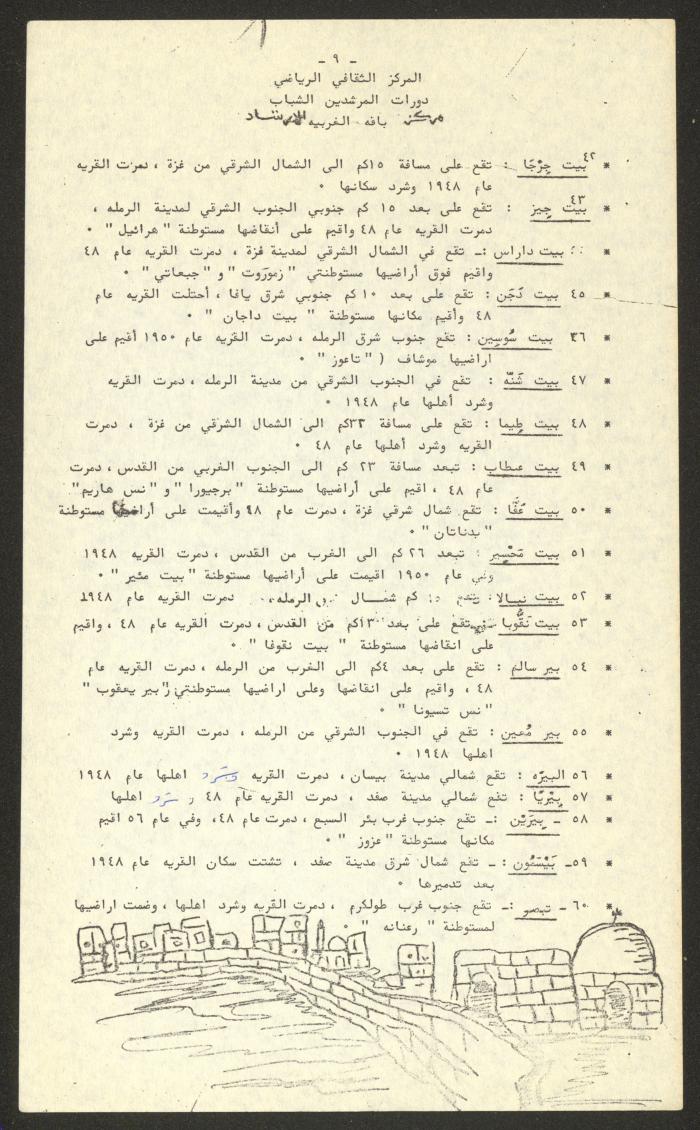 - ٩ -
المركز الثقافي الرياضي
دورات المرشدين الشباب
مركز باقه الغربيه للارشاد
* ٤٢ بيت جِرْجَا : تقع على مسافة ١٥كم الى الشمال الشرقي من غزة ، دمرت القريه
عام ١٩٤٨ وشرد سكانها ٠
* ٤٣ بيت جيز : تقع على بعد ١٥ كم جنوبي الجنوب الشرقي لمدينة الرمله ،
دمرت القريه عام ٤٨ واقيم على أنقاضها مستوطنة " هرائيل " ٠
* بيت داراس :ـ تقع في الشمال الشرقي لمدينة غزة ، دمرت القريه عام ٤٨
واقيم فوق أراضيها مستوطنتي " زموروت " و " جبعاتي " ٠
* ٤٥ بيت دَجَن : تقع على بعد ١٠ كم جنوبي شرق يافا ، أحتلت القريه عام
٤٨ وأقيم مكانها مستوطنة " بيت داجان " ٠
* ٤٦ بيت سُوسِين : تقع جنوب شرق الرمله ، دمرت القريه عام ١٩٥٠ أقيم على
اراضيها موشاف ( " تاعوز " ٠
* ٤٧ بيت شَنّه : تقع في الجنوب الشرقي من مدينة الرمله ، دمرت القريه
وشرد أهلها عام ١٩٤٨ ٠
* ٤٨ بيت طِيما : تقع على مسافة ٣٢كم الى الشمال الشرقي من غزة ، دمرت
القريه وشرد أهلها عام ٤٨ ٠
* ٤٩ بيت عطاب : تبعد مسافة ٢٣ كم الى الجنوب الغربي من القدس ، دمرت
عام ٤٨ ، اقيم على أراضيها مستوطنة " برجيورا " و " نس هاريم "
* ٥٠ بيت عَفَّا : تقع شمال شرقي غزة ، دمرت عام ٤٨ وأقيمت على أراضيها مستوطنة
" يدناتان " ٠
* ٥١ بيت مَحْسِير : تبعد ٢٦ كم الى الغرب من القدس ، دمرت القريه ١٩٤٨
وفي عام ١٩٥٠ اقيمت على أراضيها مستوطنة " بيت مئير " ٠
* ٥٢ بيت نبالا : تقع كم شمال الرمله ، دمرت القريه عام ١٩٤٨
* ٥٣ بيت نَقُّوبا تقع على بعد ١٣كم من القدس ، دمرت القريه عام ٤٨ ، واقيم
على انقاضها مستوطنة " بيت نقوفا " ٠
* ٥٤ بير سالم : تقع على بعد ٤كم الى الغرب من الرمله ، دمرت القريه عام
٤٨ ، واقيم على انقاضها وعلى اراضيها مستوطنتي ( " بير يعقوب "
" نس تسيونا " ٠
* ٥٥ بير مُعين : تقع في الجنوب الشرقي من الرمله ، دمرت القريه وشرد
اهلها ١٩٤٨ ٠
* ٥٦ البيَره : تقع شمالي مدينة بيسان ، دمرت القريه وشرد اهلها عام ١٩٤٨
* ٥٧ بِيْريّا : تقع شمالي مدينة صفد ، دمرت القريه عام ٤٨ و شرد اهلها
* ٥٨ ـ بِيَرَيْن :ـ تقع جنوب غرب بئر السبع ، دمرت عام ٤٨، وفي عام ٥٦ اقيم
مكانها مستوطنة " عزوز " ٠
* ٥٩ـ بَيْسَمُون :ـ تقع شمال شرق مدينة صفد ، تشتت سكان القريه عام ١٩٤٨
بعد تدميرها ٠
* ٦٠ـ تبصر :ـ تقع جنوب غرب طولكرم ، دمرت القريه وشرد اهلها ، وضمت اراضيها
لمستوطنة " رعنانه " ٠